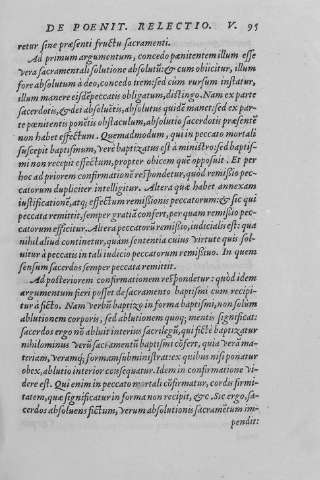 DE POENIT. RELECTIO. V. 95
retur sine præsenti fructu sacramenti.
Ad primum argumentum, concedo pœnitentem illum esse
vera sacramentali solutione absolutū: & cum obiicitur, illum
fore absolutum à deo, concedo item: sed cum rursum instatur,
illum manere eisdē peccatis obligatum, distingo. Nam ex parte
sacerdotis, & dei absoluētis, absolutus quidē manet: sed ex par-
te pœnitentis ponētis obstaculum, absolutio sacerdotis præsentē
non habet effectum. Quemadmodum, qui in peccato mortali
suscepit baptismum, verè baptizatus est à ministro: sed baptis-
mi non recepit effectum, propter obicem quē opposuit. Et per
hoc ad priorem confirmationē respōdetur, quòd remißio pec-
catorum dupliciter intelligitur. Altera quæ habet annexam
iustificationē, atq; effectum remißionis peccatorum: & sic qui
peccata remittit, semper gratiā confert, per quam remißio pec-
catorum efficitur. Altera peccatorū remißio, iudicialis est: qua
nihil aliud continetur, quam sententia cuius virtute quis sol-
uitur à peccatis in tali iudicio peccatorum remißiuo. In quem
sensum sacerdos semper peccata remittit.
Ad posteriorem confirmationem respōdetur: quòd idem
argumentum fieri posset de sacramento baptismi cum recipi-
tur à ficto. Nam verbū baptizo in forma baptismi, non solùm
ablutionem corporis, sed ablutionem quoq; mentis significat:
sacerdos ergo nō abluit interius sacrilegū, qui fictè baptizatur
nihilominus verū sacramentū baptismi cōfert, quia verā ma-
teriam, veramq́; formam subministra: ex quibus nisi ponatur
obex, ablutio interior consequatur. Idem in confirmatione vi-
dere est. Qui enim in peccato mortali cōfirmatur, cordis firmi-
tatem, quæ significatur in forma non recipit, &c. Sic ergo, sa-
cerdos absoluens fictum, verum absolutionis sacramētum im-
pendit: